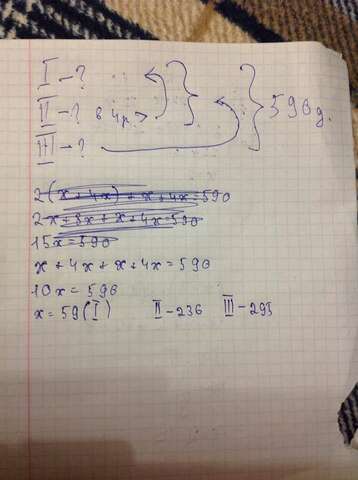 I – ?
II – ? в 4 р. > } 590 д.
III – ?
2(x + 4x) + x + 4x = 590
2x + 8x + x + 4x = 590
15x = 590
x + 4x + x + 4x = 590
10x = 590
x = 59 (I) II – 236 III – 295